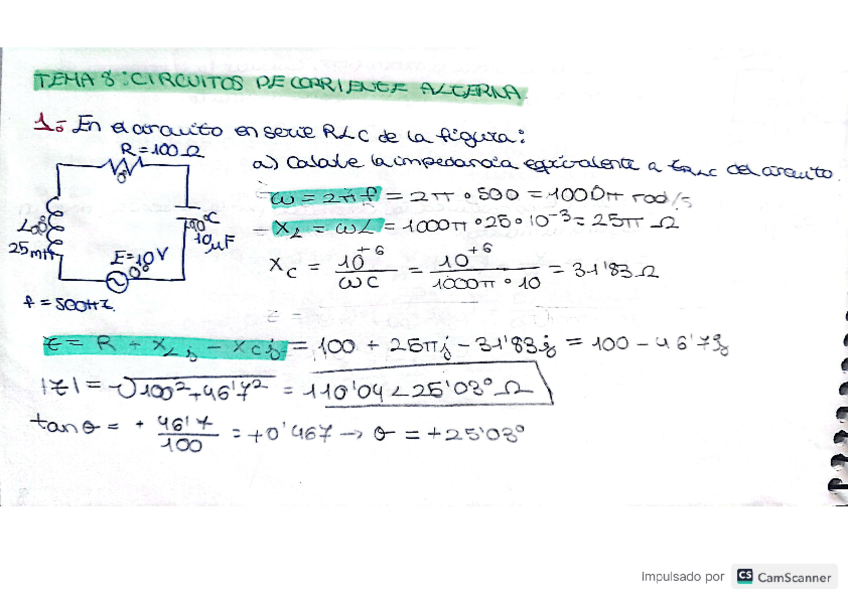 TEMA 8: CIRCUITOS DE CORRIENTE ALTERNA
1.- En el circuito en serie RLC de la figura:
R=100Ω
0°
a) Calcule la impedancia equivalente a ZRLC del circuito.
ω = 2πf = 2π · 500 = 1000π rad/s
L 90°
25mH
-90° C
10μF
XL = ωL = 1000π · 25 · 10⁻³ = 25π Ω
E=10V
0°
f = 500Hz.
XC = 10⁺⁶ / ωC = 10⁺⁶ / 1000π · 10 = 31'83Ω
Z = R + XLj - XCj = 100 + 25πj - 31'83j = 100 - 46'7j
|Z| = √100²+46'7² = 110'04∠25'03° Ω
tanθ = + 46'7 / 100 = +0'467 → θ = +25'03°
Impulsado por CS CamScanner